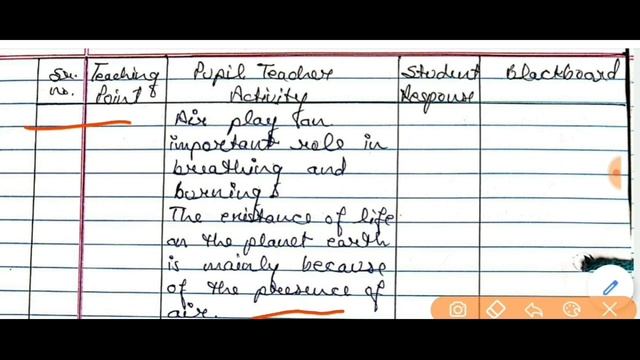 Sr. Teaching Pupil Teacher Student Blackboard
no. Point Activity Response
Air play an
important role in
breathing and
burning.
The existance of life
on the planet earth
is mainly because
of the presence of
air.